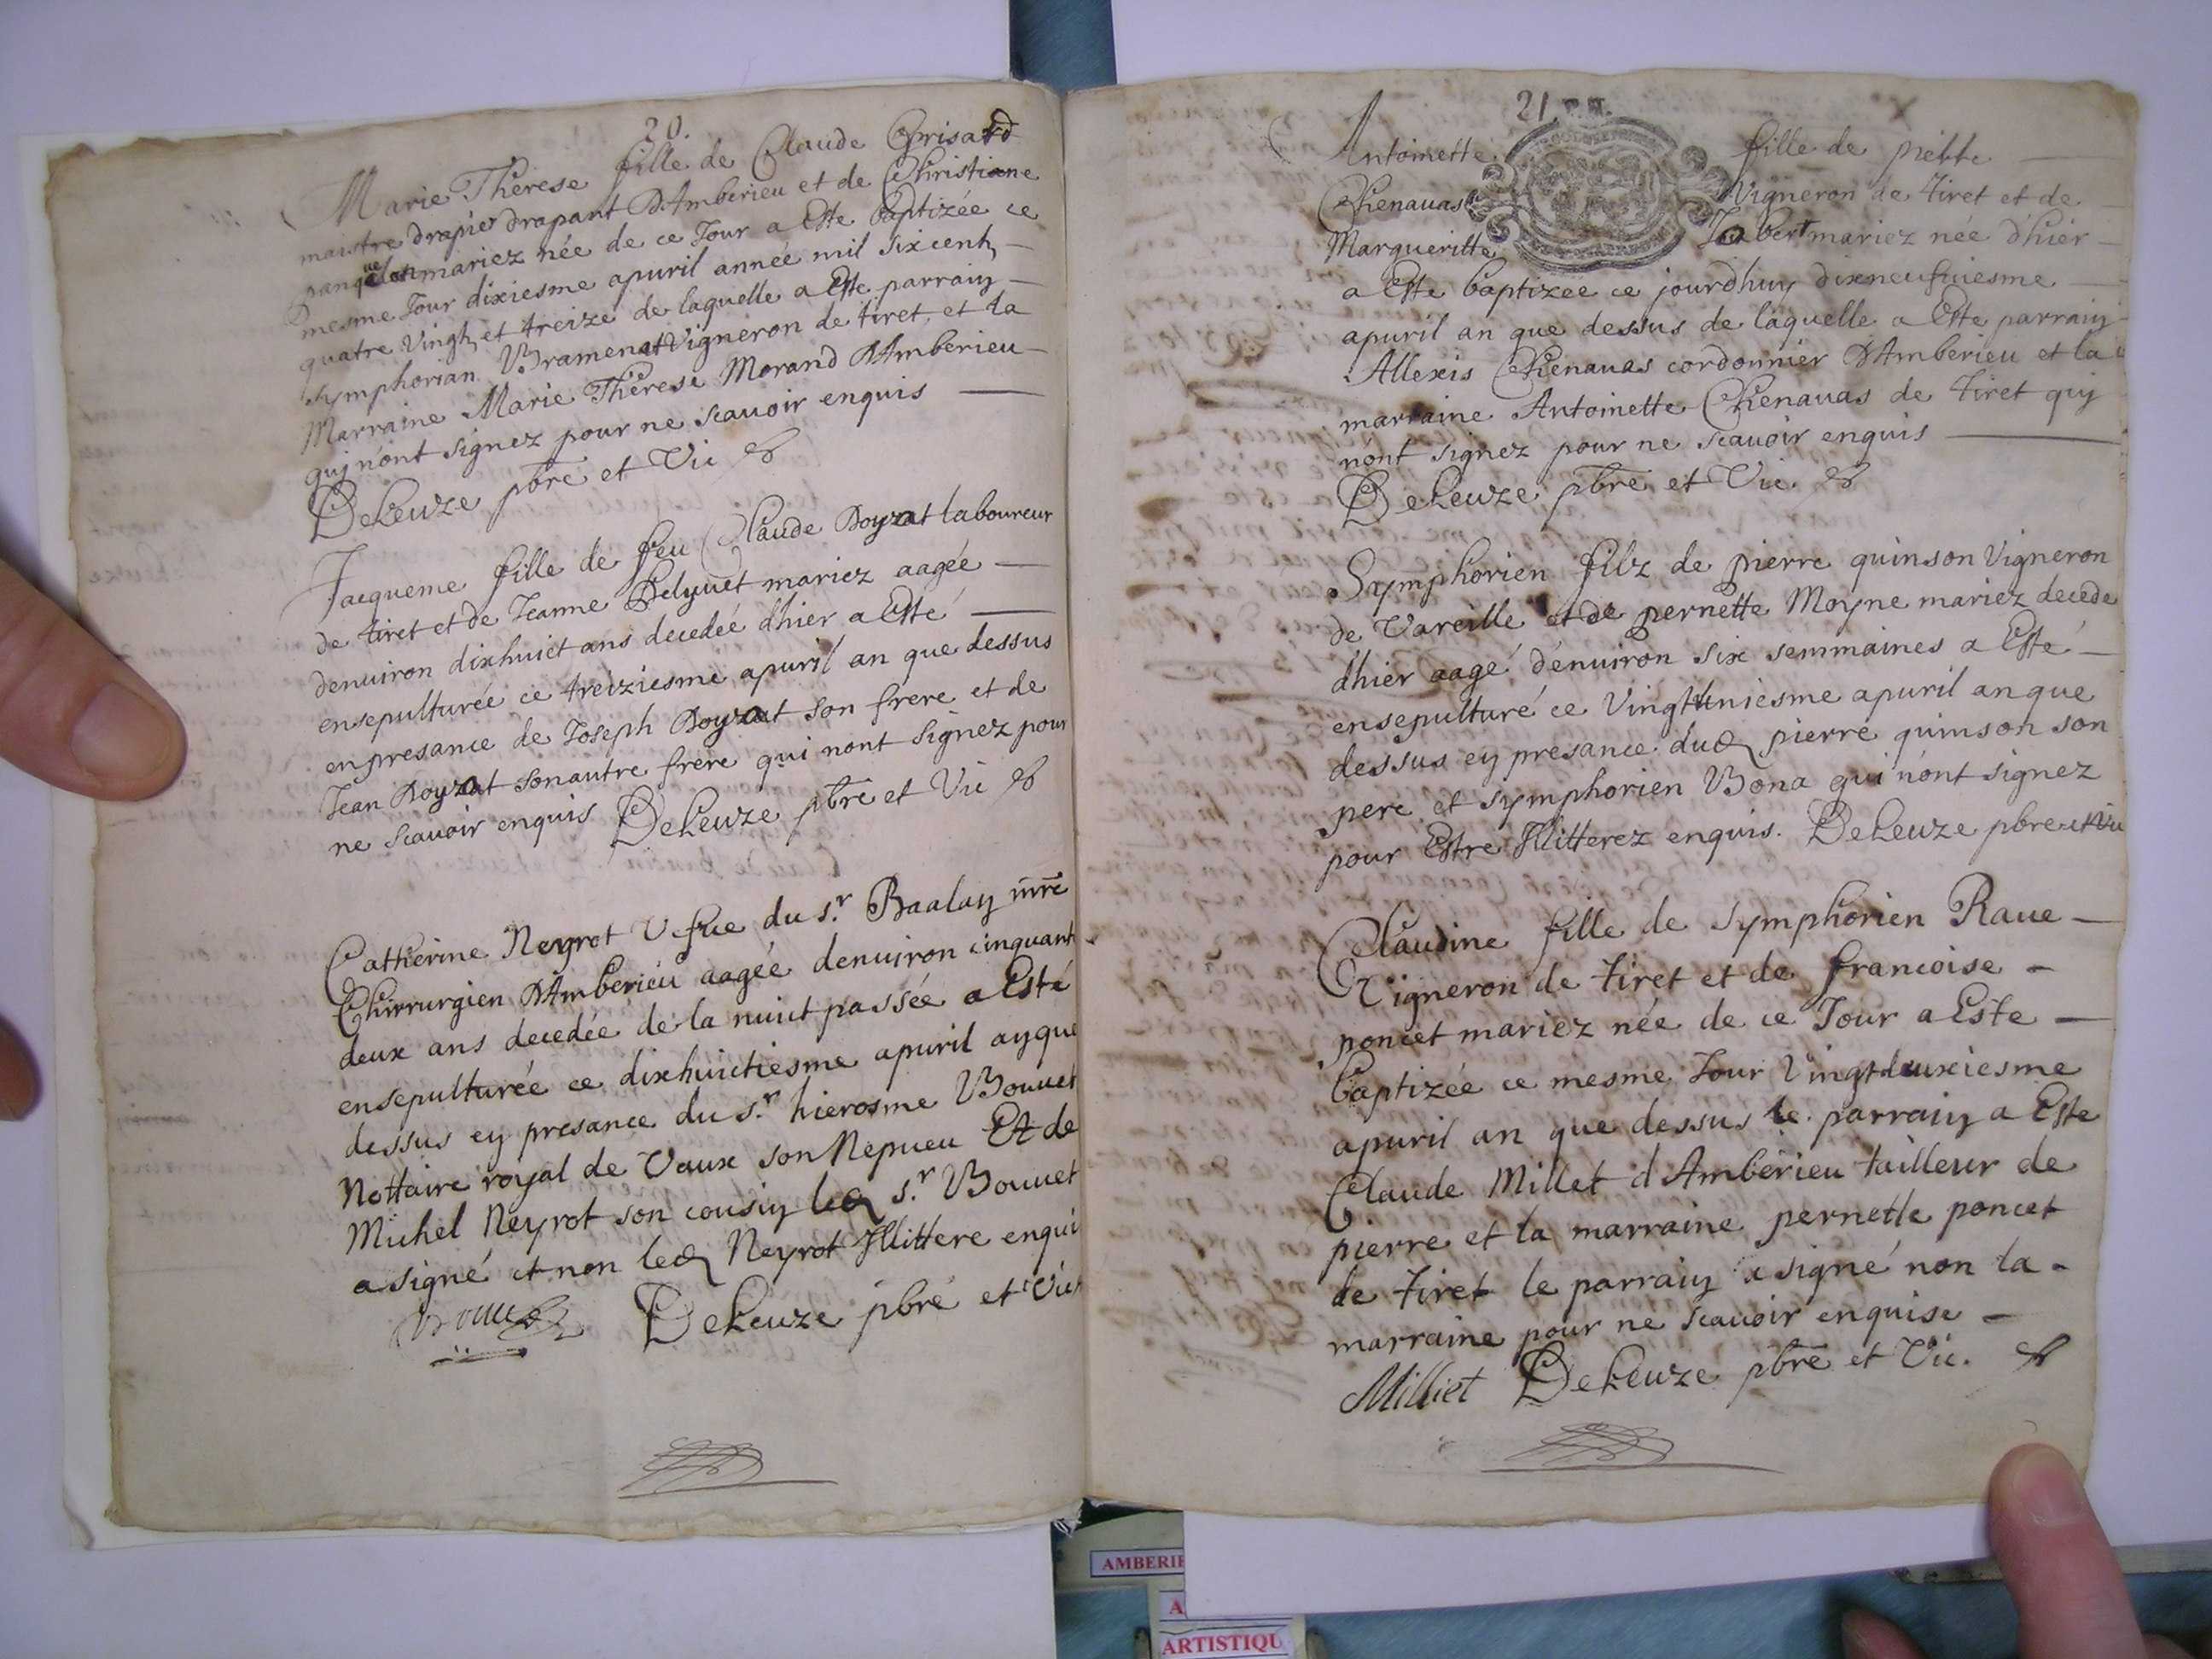 20.
Marie Therese fille de Claude Grisard
maistre drapier drapant D'Amberieu et de Christiane
mariez née de ce Jour a Esté baptizée ce
mesme Jour dixiesme apuril année mil six cents
quatre Vingts et treize de laquelle a Esté parrain
symphorian Bramenat Vigneron de tiret et la
Marraine Marie Therese Morand D'Amberieu
qui n'ont signez pour ne scauoir enquis
DeLeuze pbre et Vic
Jacqueme fille de feu Claude Doyzat laboureur
de tiret et de Jeanne Belyuet mariez aagée
denuiron dixhuict ans decedée d'hier a Esté
ensepulturée ce treiziesme apuril an que dessus
en presance de Joseph Doyzat son frere et de
Jean Doyzat son autre frere qui nont signez pour
ne scauoir enquis DeLeuze pbre et Vic
Catherine Neyrot Vefue du s.r Baalay mre
Chirrurgien D'Amberieu aagée denuiron cinquant
deux ans decedée de la nuict passée a Esté
ensepulturée ce dixhuictiesme apuril an que
dessus en presance du s.r hierosme Bouuet
Nottaire royal de Vaux son Nepueu Et de
Michel Neyrot son cousin led s.r Bouuet
a signé et non led Neyrot Illittere enqui
Bouuet DeLeuze pbre et Vic
21
Antoinette fille de pierre
Chenauas Vigneron de tiret et de
Margueritte Jabert mariez née d'hier
a Esté baptizée ce jourdhuy dixneufuiesme
apuril an que dessus de laquelle a Esté parrain
Allexis Chenauas cordonnier D'Amberieu et la
marraine Antoinette Chenauas de tiret qui
n'ont signez pour ne scauoir enquis
DeLeuze pbre et Vic.
Symphorien filz de pierre quinson Vigneron
de Vareille et de pernette Moyne mariez decede
d'hier aagé d'enuiron six semmaines a Esté
ensepulturé ce Vingtuniesme apuril an que
dessus en presance dud pierre quinson son
pere et symphorien Bona qui n'ont signez
pour Estre Illitterez enquis. DeLeuze pbre et Vic
Claudine fille de symphorien Raue
Vigneron de tiret et de francoise
poncet mariez née de ce Jour a Esté
baptizée ce mesme Jour Vingtdeuxiesme
apuril an que dessus le parrain a Esté
Claude Millet d'Amberieu tailleur de
pierre et la marraine pernette poncet
de tiret le parrain a signé non la
marraine pour ne scauoir enquise
Milliet DeLeuze pbre et Vic.
AMBERIE
A
ARTISTIQU